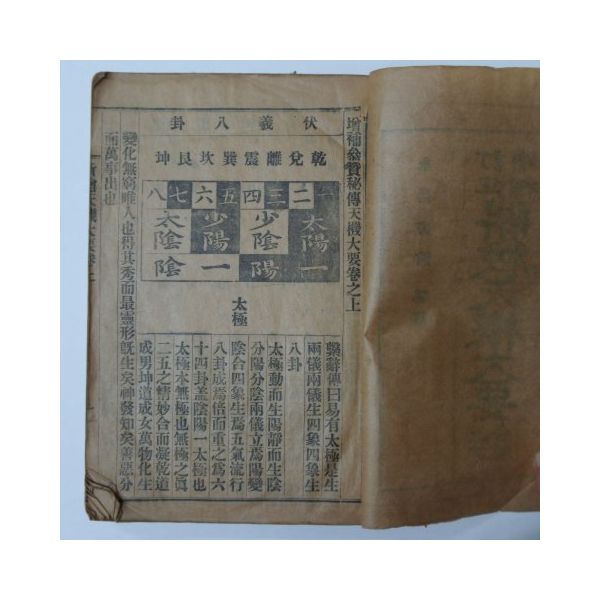 增補叅贊秘傳天機大要卷之上
伏羲八卦
乾兌離震巽坎艮坤
一二三四五六七八
太陽少陰少陽太陰
一陽一陰
太極
繫辭傳曰易有太極是生
兩儀兩儀生四象四象生
八卦
太極動而生陽靜而生陰
分陽分陰兩儀立焉陽變
陰合四象生焉五氣流行
八卦成焉倍而重之爲六
十四卦盖陰陽一太極也
太極本無極也無極之眞
二五之精妙合而凝乾道
成男坤道成女萬物化生
變化無窮唯人也得其秀而最靈形旣生矣神發知矣善惡分
而萬事出也